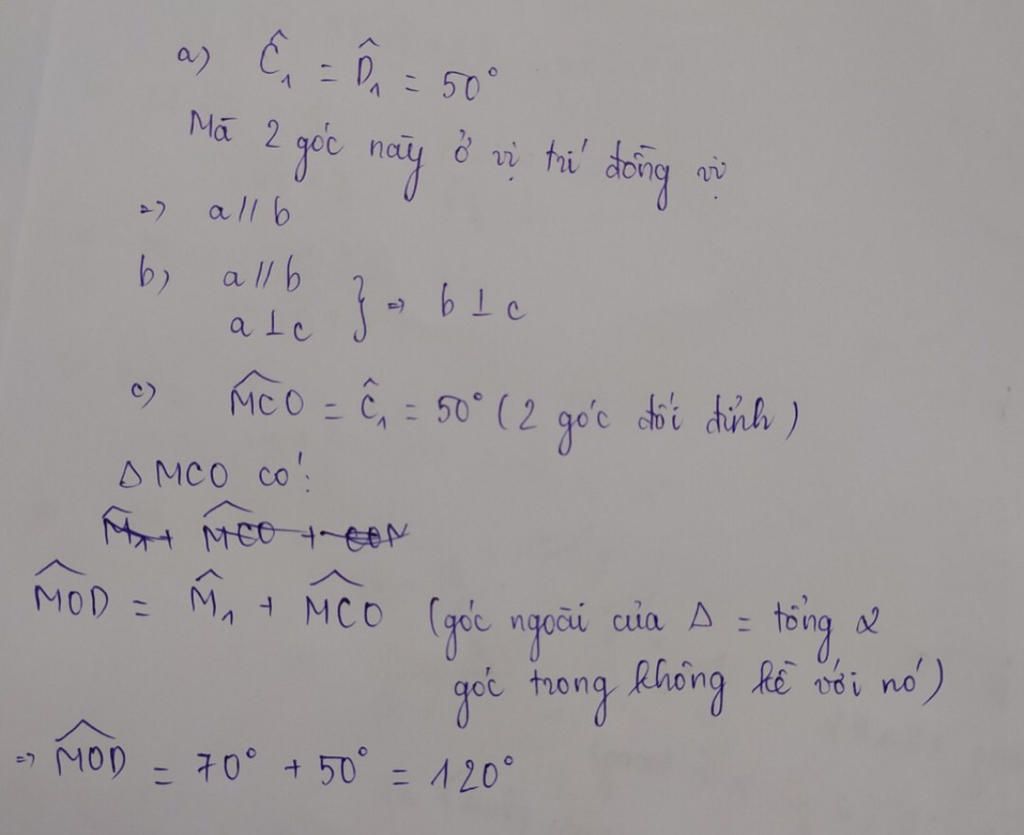 a) Ĉ₁ = D̂₁ = 50°
Mà 2 góc này ở vị trí đồng vị
=> a // b
b) a // b
a ⊥ c } => b ⊥ c
c) \widehat{MCO} = Ĉ₁ = 50° (2 góc đối đỉnh)
Δ MCO có:
\widehat{MOD} = M̂₁ + \widehat{MCO} (góc ngoài của Δ = tổng 2
góc trong không kề với nó)
=> \widehat{MOD} = 70° + 50° = 120°